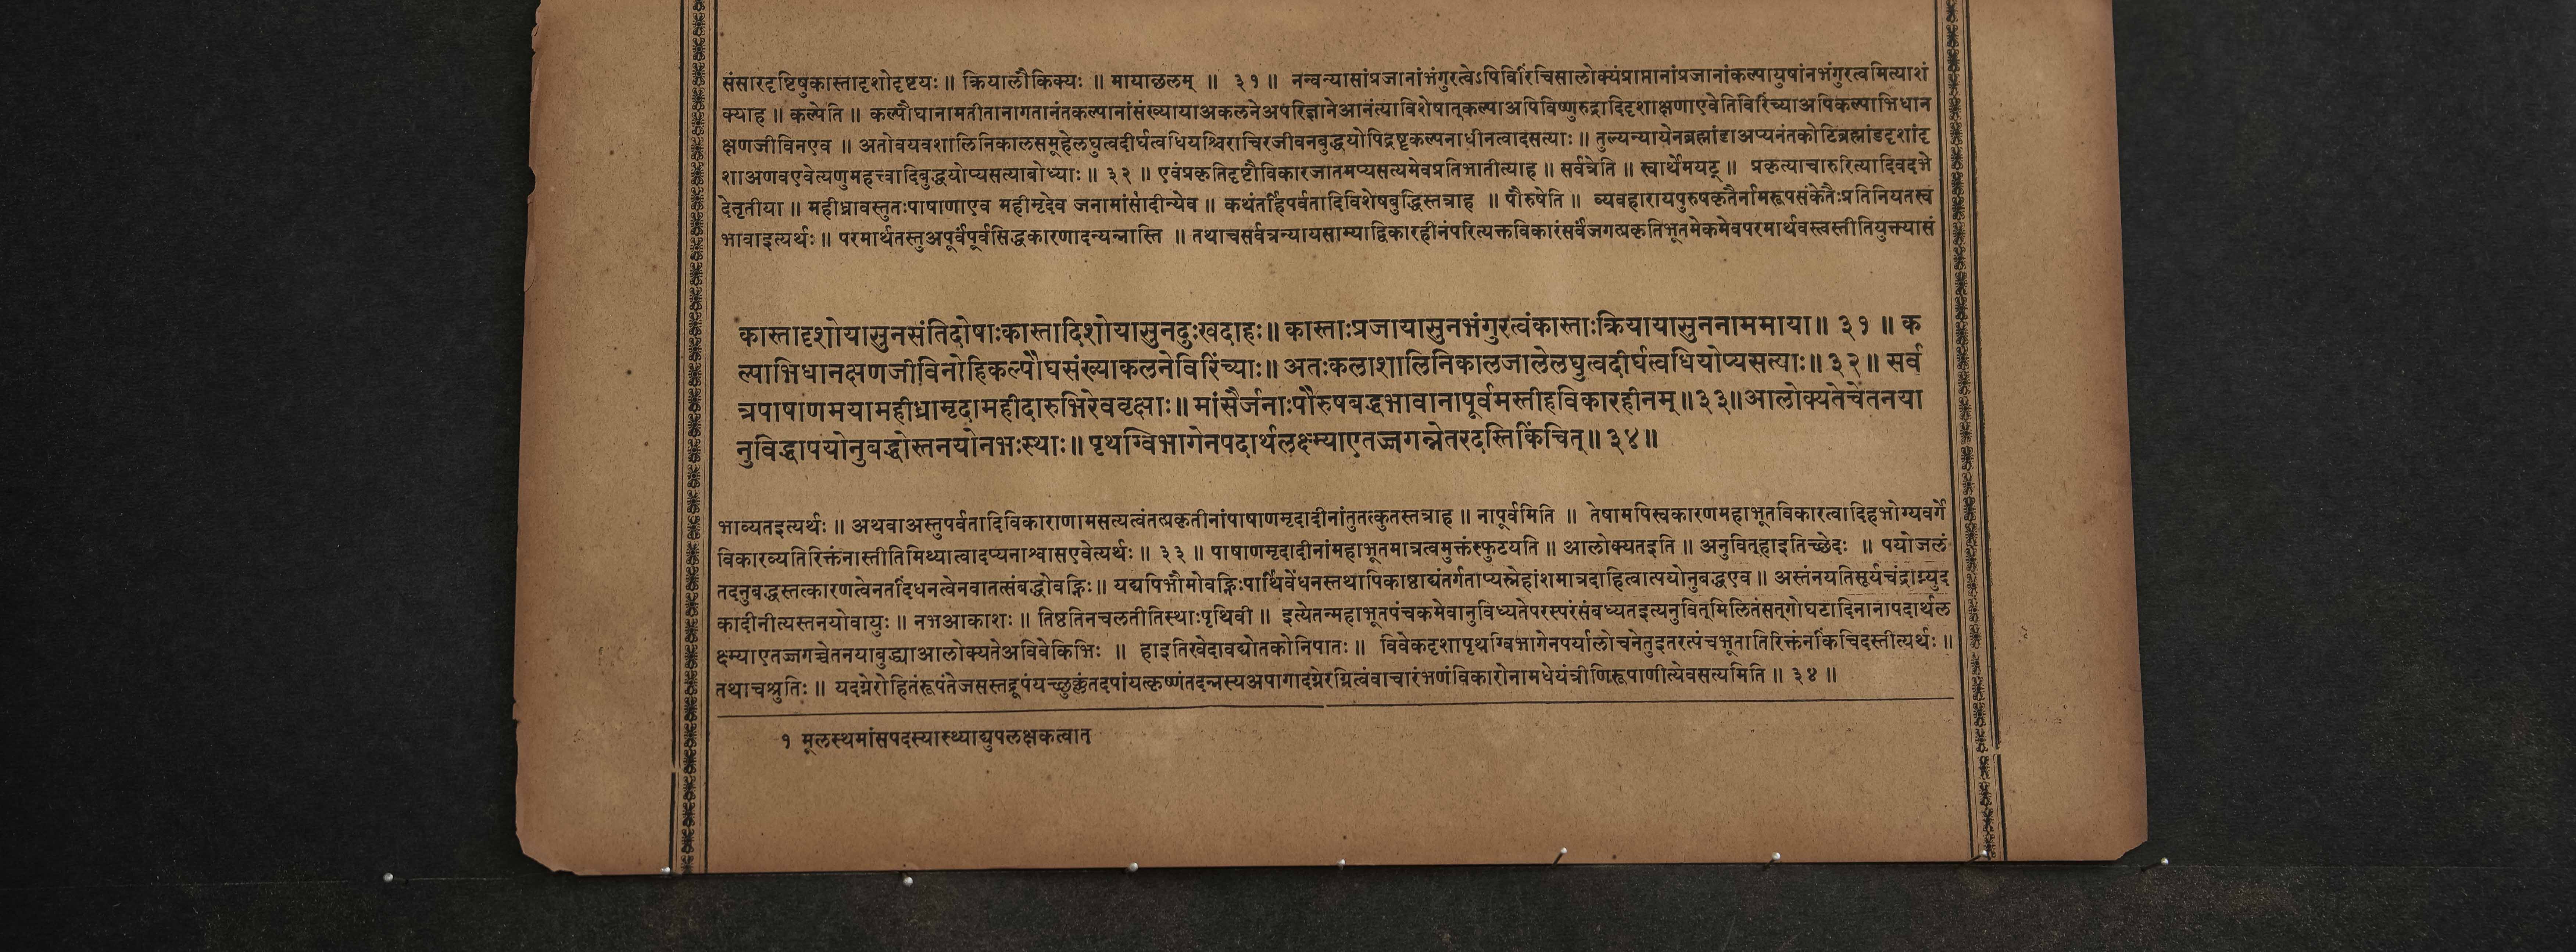 संसारदृष्टिषुकास्तादृशोदृष्टयः ॥ क्रियालौकिक्यः ॥ मायाछलम् ॥ ३१ ॥ नन्वन्यासांप्रजानांभंगुरत्वेऽपिविरिंचिसालोक्यंप्राप्तानांप्रजानांकल्पायुषांनभंगुरत्वमित्याशं
क्याह ॥ कल्पेति ॥ कल्पौघानामतीतानागतानंतकल्पानांसंख्यायाअकलनेअपरिज्ञानेआनंत्याविशेषात्कल्पाअपिविष्णुरुद्रादिदृशाक्षणाएवेतिविरिंच्याअपिकल्पाभिधान
क्षणजीविनएव ॥ अतोवयवशालिनिकालसमूहेलघुत्वदीर्घत्वधियश्चिराचिरजीवनबुद्धयोपिद्रष्टृकल्पनाधीनत्वादसत्याः ॥ तुल्यन्यायेनब्रह्मांडाअप्यनंतकोटिब्रह्मांडदृशांदृ
शाअणवएवेत्यणुमहत्त्वादिबुद्धयोप्यसत्याबोध्याः ॥ ३२ ॥ एवंप्रकृतिदृष्टौविकारजातमप्यसत्यमेवप्रतिभातीत्याह ॥ सर्वत्रेति ॥ स्वार्थेमयट् ॥ प्रकृत्याचारुरित्यादिवदभे
देतृतीया ॥ महीध्रावस्तुतःपाषाणाएव महीमृदेव जनामांसादीन्येव ॥ कथंतर्हिपर्वतादिविशेषबुद्धिस्तत्राह ॥ पौरुषेति ॥ व्यवहारायपुरुषकृतैर्नामरूपसंकेतैःप्रतिनियतस्व
भावाइत्यर्थः ॥ परमार्थतस्तुअपूर्वंपूर्वसिद्धकारणादन्यन्नास्ति ॥ तथाचसर्वत्रन्यायसाम्याद्विकारहीनंपरित्यक्तविकारंसर्वंजगत्प्रकृतिभूतमेकमेवपरमार्थवस्त्वस्तीतियुक्त्यासं
कास्तादृशोयासुनसंतिदोषाःकास्तादिशोयासुनदुःखदाहः॥ कास्ताःप्रजायासुनभंगुरत्वंकास्ताःक्रियायासुननाममाया॥ ३१ ॥ क
ल्पाभिधानक्षणजीविनोहिकल्पौघसंख्याकलनेविरिंच्याः॥ अतःकलाशालिनिकालजालेलघुत्वदीर्घत्वधियोप्यसत्याः॥ ३२॥ सर्व
त्रपाषाणमयामहीध्रामृदामहीदारुभिरेववृक्षाः॥ मांसैर्जनाःपौरुषबद्धभावानापूर्वमस्तीहविकारहीनम्॥३३॥आलोक्यतेचेतनया
नुविद्धापयोनुबद्धोस्तनयोनभःस्थाः॥ पृथग्विभागेनपदार्थलक्ष्म्याएतज्जगन्नेतरदस्तिकिंचित्॥ ३४॥
भाव्यतइत्यर्थः ॥ अथवाअस्तुपर्वतादिविकाराणामसत्यत्वंतत्प्रकृतीनांपाषाणमृदादीनांतुतत्कुतस्तत्राह ॥ नापूर्वमिति ॥ तेषामपिस्वकारणमहाभूतविकारत्वादिहभोग्यवर्गे
विकारव्यतिरिक्तंनास्तीतिमिथ्यात्वादप्यनाश्वासएवेत्यर्थः ॥ ३३ ॥ पाषाणमृदादीनांमहाभूतमात्रत्वमुक्तंस्फुटयति ॥ आलोक्यतइति ॥ अनुवित्हाइतिच्छेदः ॥ पयोजलं
तदनुबद्धस्तत्कारणत्वेनतदिंधनत्वेनवातत्संबद्धोवह्निः॥ यद्यपिभौमोवह्निःपार्थिवेंधनस्तथापिकाष्ठाद्यंतर्गताप्यस्नेहांशमात्रदाहित्वात्पयोनुबद्धएव ॥ अस्तंनयतिसूर्यचंद्राग्न्युद
कादीनीत्यस्तनयोवायुः ॥ नभआकाशः ॥ तिष्ठतिनचलतीतिस्थाःपृथिवी ॥ इत्येतन्महाभूतपंचकमेवानुविध्यतेपरस्परंसंबध्यतइत्यनुवित्मिलितंसत्गोघटादिनानापदार्थल
क्ष्म्याएतज्जगच्चेतनयाबुद्ध्याआलोक्यतेअविवेकिभिः ॥ हाइतिखेदावद्योतकोनिपातः ॥ विवेकदृशापृथग्विभागेनपर्यालोचनेतुइतरत्पंचभूतातिरिक्तंनकिंचिदस्तीत्यर्थः ॥
तथाचश्रुतिः ॥ यदग्नेरोहितंरूपंतेजसस्तद्रूपंयच्छुक्लंतदपांयत्कृष्णंतदन्नस्यअपागादग्नेरग्नित्वंवाचारंभणंविकारोनामधेयंत्रीणिरूपाणीत्येवसत्यमिति ॥ ३४ ॥
१ मूलस्थमांसपदस्यास्थ्याद्युपलक्षकत्वात्